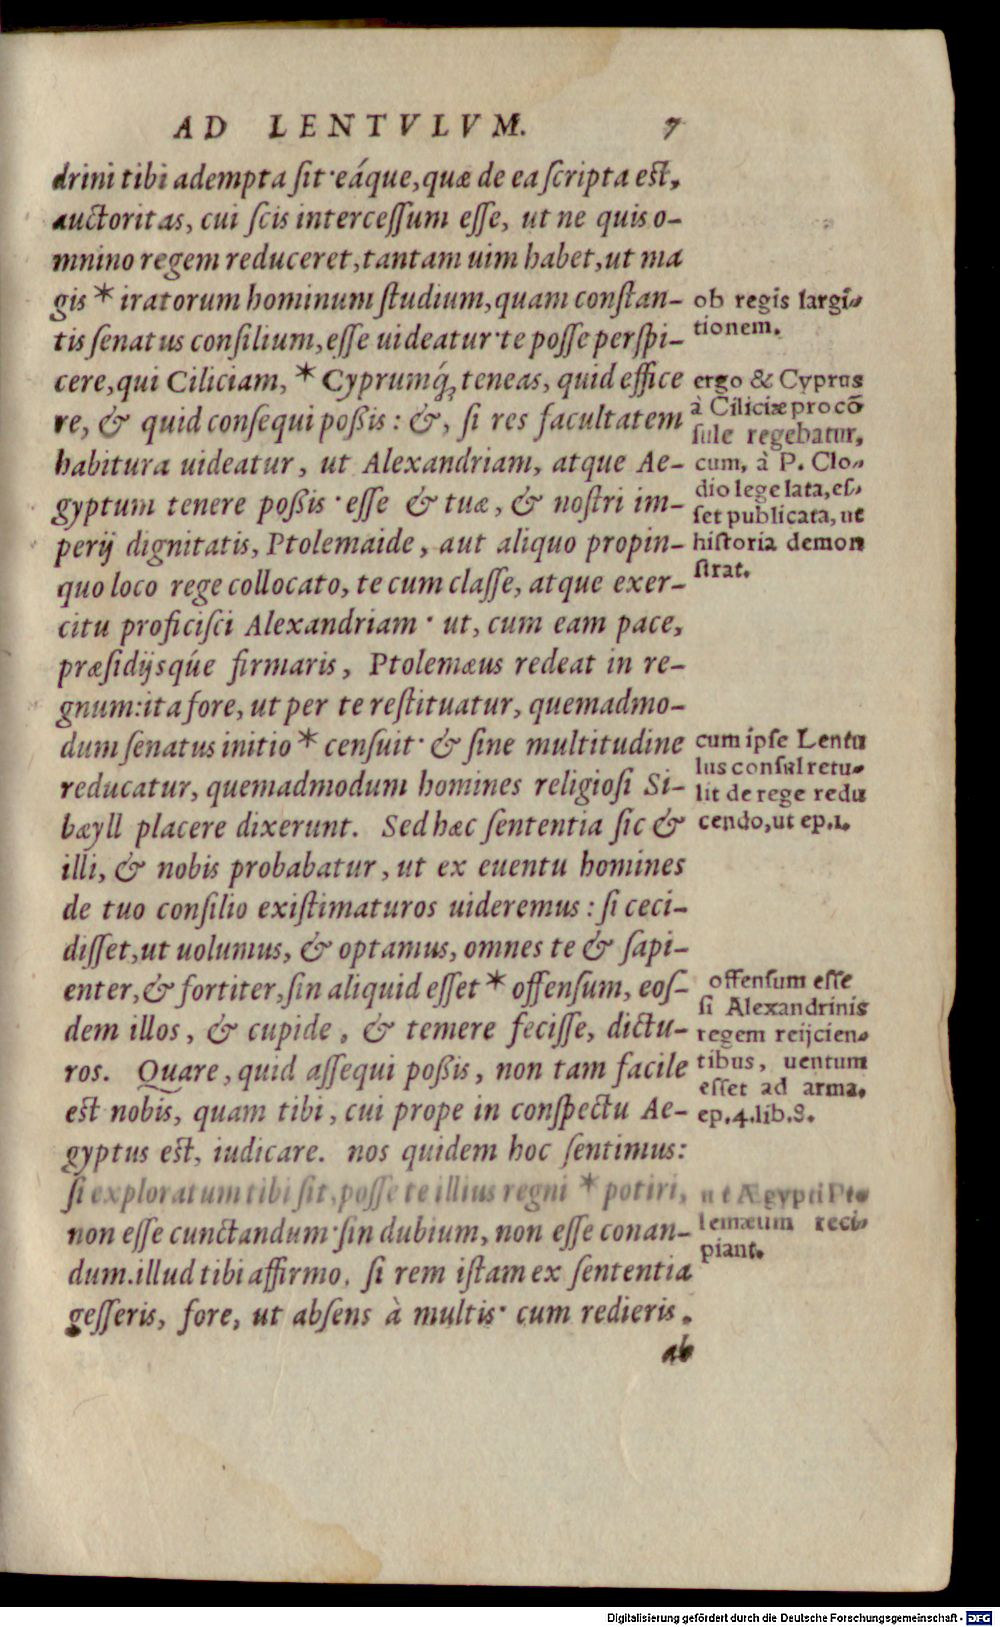 AD LENTVLVM. 7
drini tibi adempta ſit·eáque, quæ de ea ſcripta eſt,
auctoritas, cui ſcis interceſſum eſſe, ut ne quis o-
mnino regem reduceret, tantam uim habet, ut ma
gis * iratorum hominum ſtudium, quam conſtan-
tis ſenatus conſilium, eſſe uideatur·te poſſe perſpi-
cere, qui Ciliciam, * Cyprumq́ꝫ teneas, quid effice
re, & quid conſequi poßis: &, ſi res facultatem
habitura uideatur, ut Alexandriam, atque Ae-
gyptum tenere poßis· eſſe & tuæ, & noſtri im-
perij dignitatis, Ptolemaide, aut aliquo propin-
quo loco rege collocato, te cum claſſe, atque exer-
citu proficiſci Alexandriam· ut, cum eam pace,
præſidijsq́ue firmaris, Ptolemæus redeat in re-
gnum: ita fore, ut per te reſtituatur, quemadmo-
dum ſenatus initio * cenſuit· & ſine multitudine
reducatur, quemadmodum homines religioſi Si-
bæyll placere dixerunt. Sed hæc ſententia ſic &
illi, & nobis probabatur, ut ex euentu homines
de tuo conſilio exiſtimaturos uideremus: ſi ceci-
diſſet, ut uolumus, & optamus, omnes te & ſapi-
enter, & fortiter, ſin aliquid eſſet * offenſum, eoſ-
dem illos, & cupide, & temere feciſſe, dictu-
ros. Quare, quid aſſequi poßis, non tam facile
eſt nobis, quam tibi, cui prope in conſpectu Ae-
gyptus eſt, iudicare. nos quidem hoc ſentimus:
ſi exploratum tibi ſit, poſſe te illius regni * potiri,
non eſſe cunctandum·ſin dubium, non eſſe conan-
dum. illud tibi affirmo, ſi rem iſtam ex ſententia
geſſeris, fore, ut abſens à multis· cum redieris,
ab
ob regis largi-
tionem.
ergo & Cyprus
à Ciliciæ procõ
ſule regebatur,
cum, à P. Clo-
dio lege lata, eſ-
ſet publicata, ut
hiſtoria demon
ſtrat.
cum ipſe Lentu
lus conſul retu-
lit de rege redu
cendo, ut ep.1.
offenſum eſſe
ſi Alexandrinis
regem reijcien-
tibus, uentum
eſſet ad arma.
ep.4.lib.8.
ut Ægypti Pto
lemæum reci-
piant.
Digitalisierung gefördert durch die Deutsche Forschungsgemeinschaft - DFG